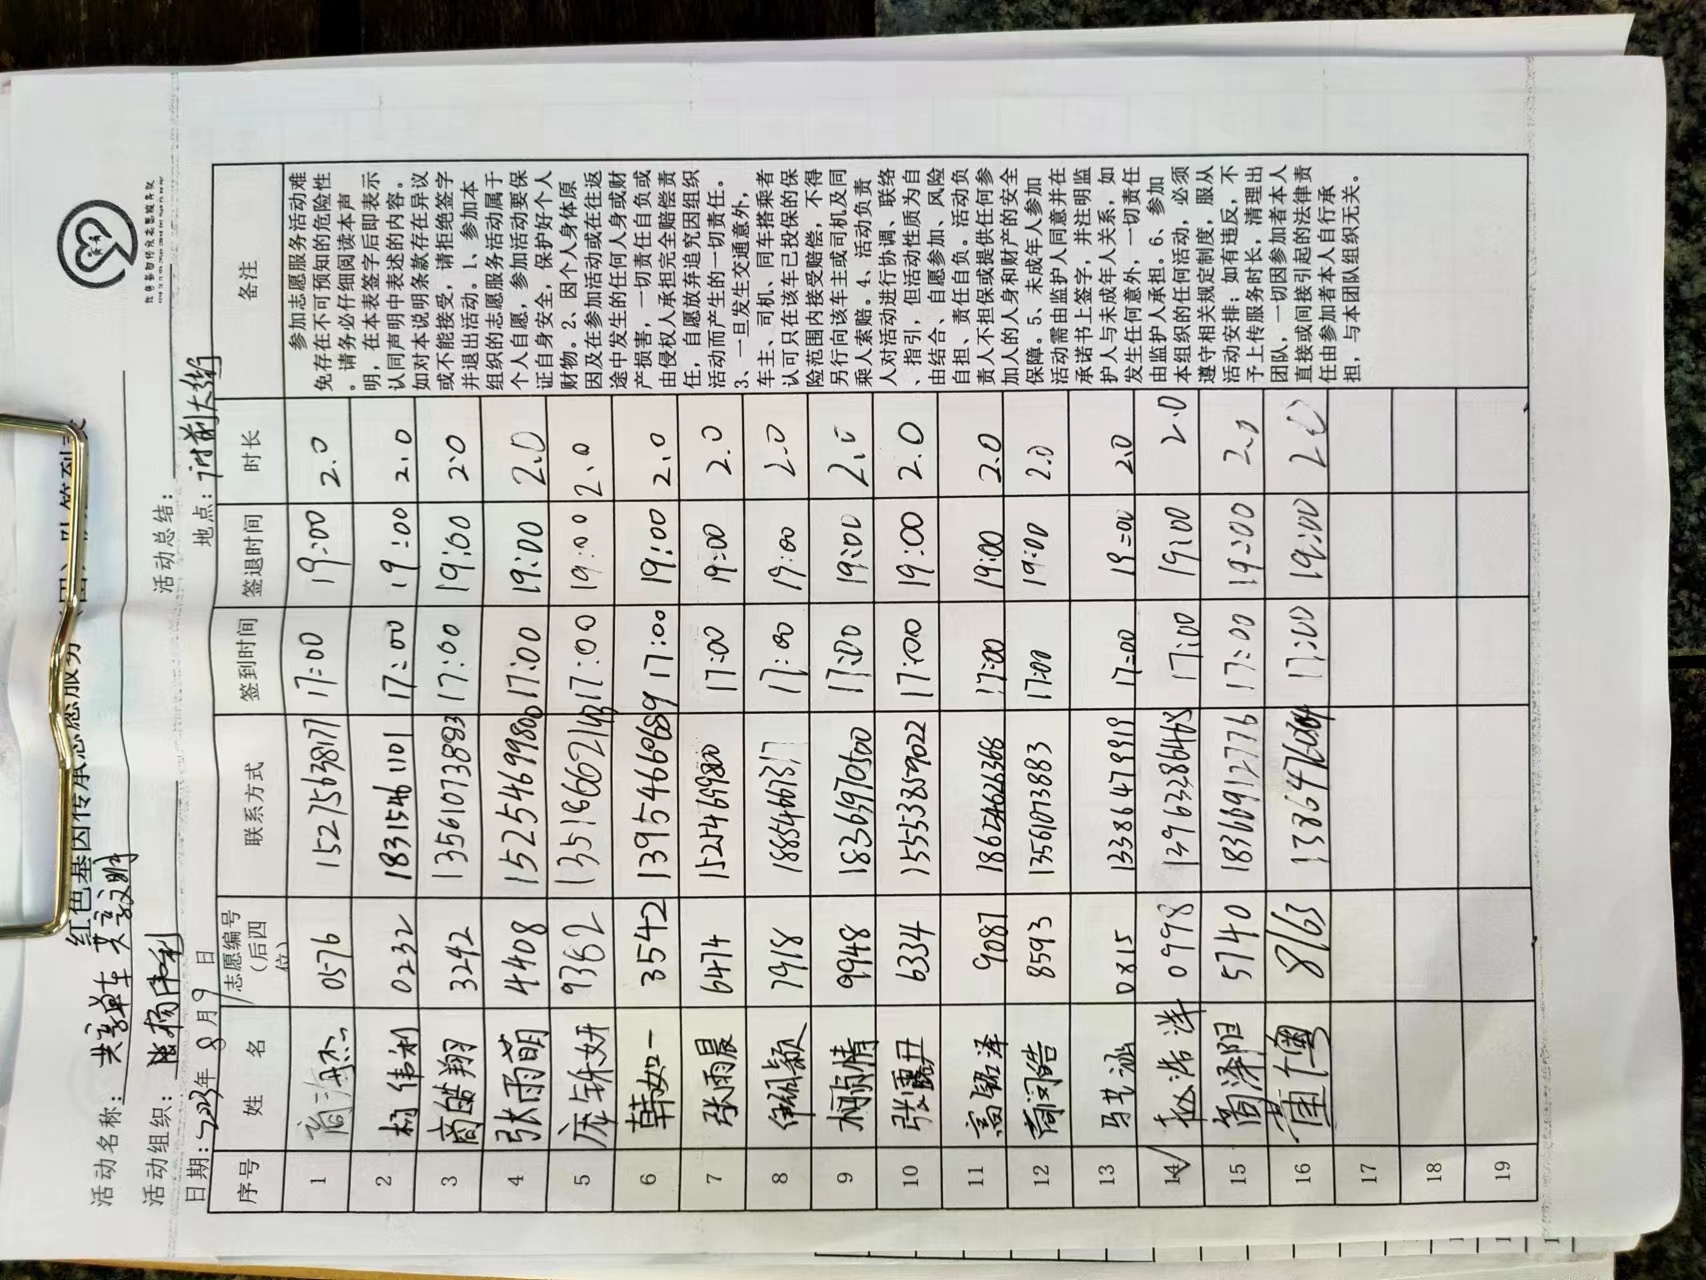 红色基因传承志愿服务
活动名称: 共享单车 共享文明
活动组织:
活动总结:
日期: 2023年 8 月 9 日
地点: 府前大街
序号 姓 名 志愿编号(后四位) 联系方式 签到时间 签退时间 时长 备注
1 0576 15275638177 17:00 19:00 2.0
2 杨伟利 0232 18315461101 17:00 19:00 2.0
3 商皓翔 3242 13561073883 17:00 19:00 2.0
4 张雨萌 4408 15254699800 17:00 19:00 2.0
5 9362 17:00 19:00 2.0
6 韩如一 3542 13954660689 17:00 19:00 2.0
7 张雨晨 6474 15254699800 17:00 19:00 2.0
8 7918 17:00 19:00 2.0
9 9948 18369707500 17:00 19:00 2.0
10 张露丹 6334 15533859022 17:00 19:00 2.0
11 高铭泽 9087 18624626366 17:00 19:00 2.0
12 8593 13561073883 17:00 19:00 2.0
13 0815 13386479919 17:00 19:00 2.0
14 0998 17:00 19:00 2.0
15 5740 18366912776 17:00 19:00 2.0
16 8163 17:00 19:00 2.0
17
18
19
参加志愿服务活动难
免存在不可预知的危险性
。请务必仔细阅读本声
明,在本表签字后即表示
认同声明中表述的内容。
如对本说明条款存在异议
或不能接受,请拒绝签字
并退出活动。1、参加本
组织的志愿服务活动属于
个人自愿,参加活动要保
证自身安全,保护好个人
财物。2、因个人身体原
因及在参加活动或在往返
途中发生的任何人身或财
产损害,一切责任自负或
由侵权人承担完全赔偿责
任,自愿放弃追究因组织
活动而产生的一切责任。
3、一旦发生交通意外,
车主、司机、同车搭乘者
认可只在该车已投保的保
险范围内接受赔偿,不得
另行向该车主或司机及同
乘人索赔。4、活动负责
人对活动进行协调、联络
、指引,但活动性质为自
由结合、自愿参加、风险
自担、责任自负。活动负
责人不担保或提供任何参
加人的人身和财产的安全
保障。5、未成年人参加
活动需由监护人同意并在
承诺书上签字,并注明监
护人与未成年人关系,如
发生任何意外,一切责任
由监护人承担。6、参加
本组织的任何活动,必须
遵守相关规定制度,服从
活动安排;如有违反,不
予上传服务时长,清理出
团队,一切因参加者本人
直接或间接引起的法律责
任由参加者本人自行承
担,与本团队组织无关。